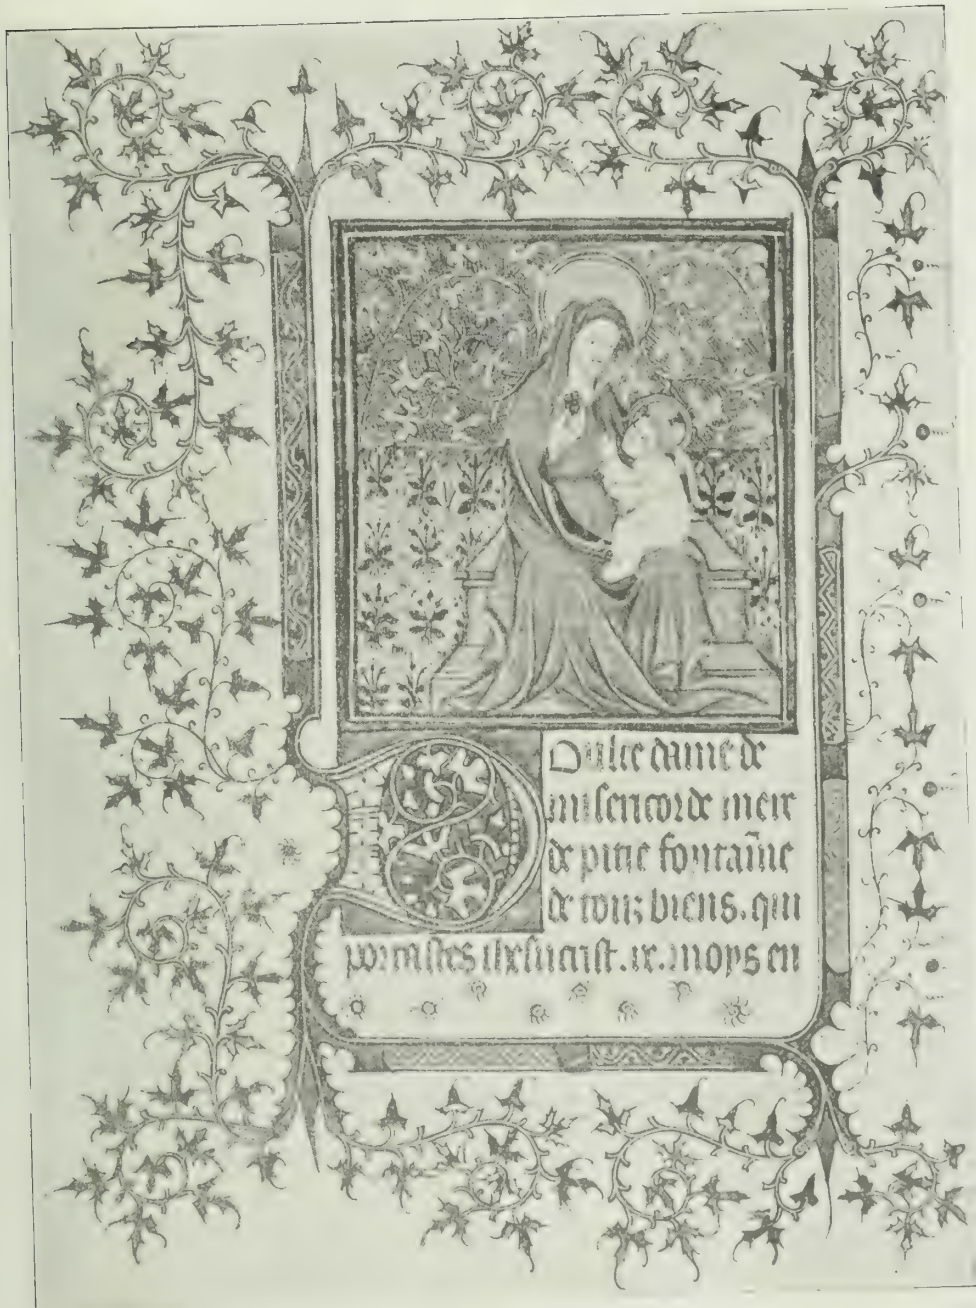 Doulce dame de
misericorde mere
de pitie fontaīne
de touz biens. qui
portastes ihesucrist. ix. moys en